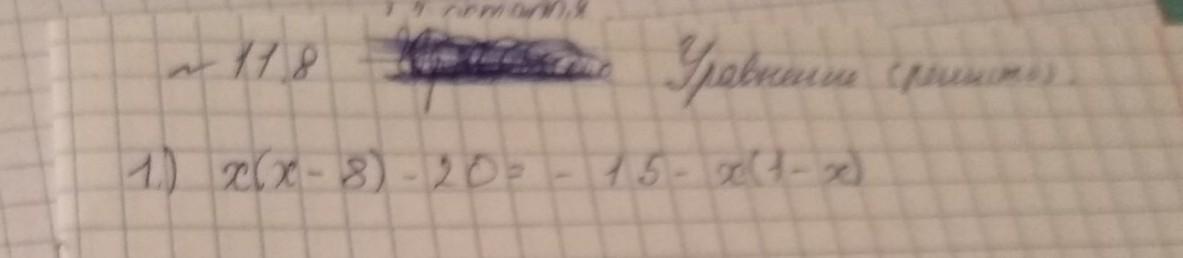 ~ 11.8 Уравнение (решить).
1.) x(x - 8) - 20 = - 15 - x(1 - x)